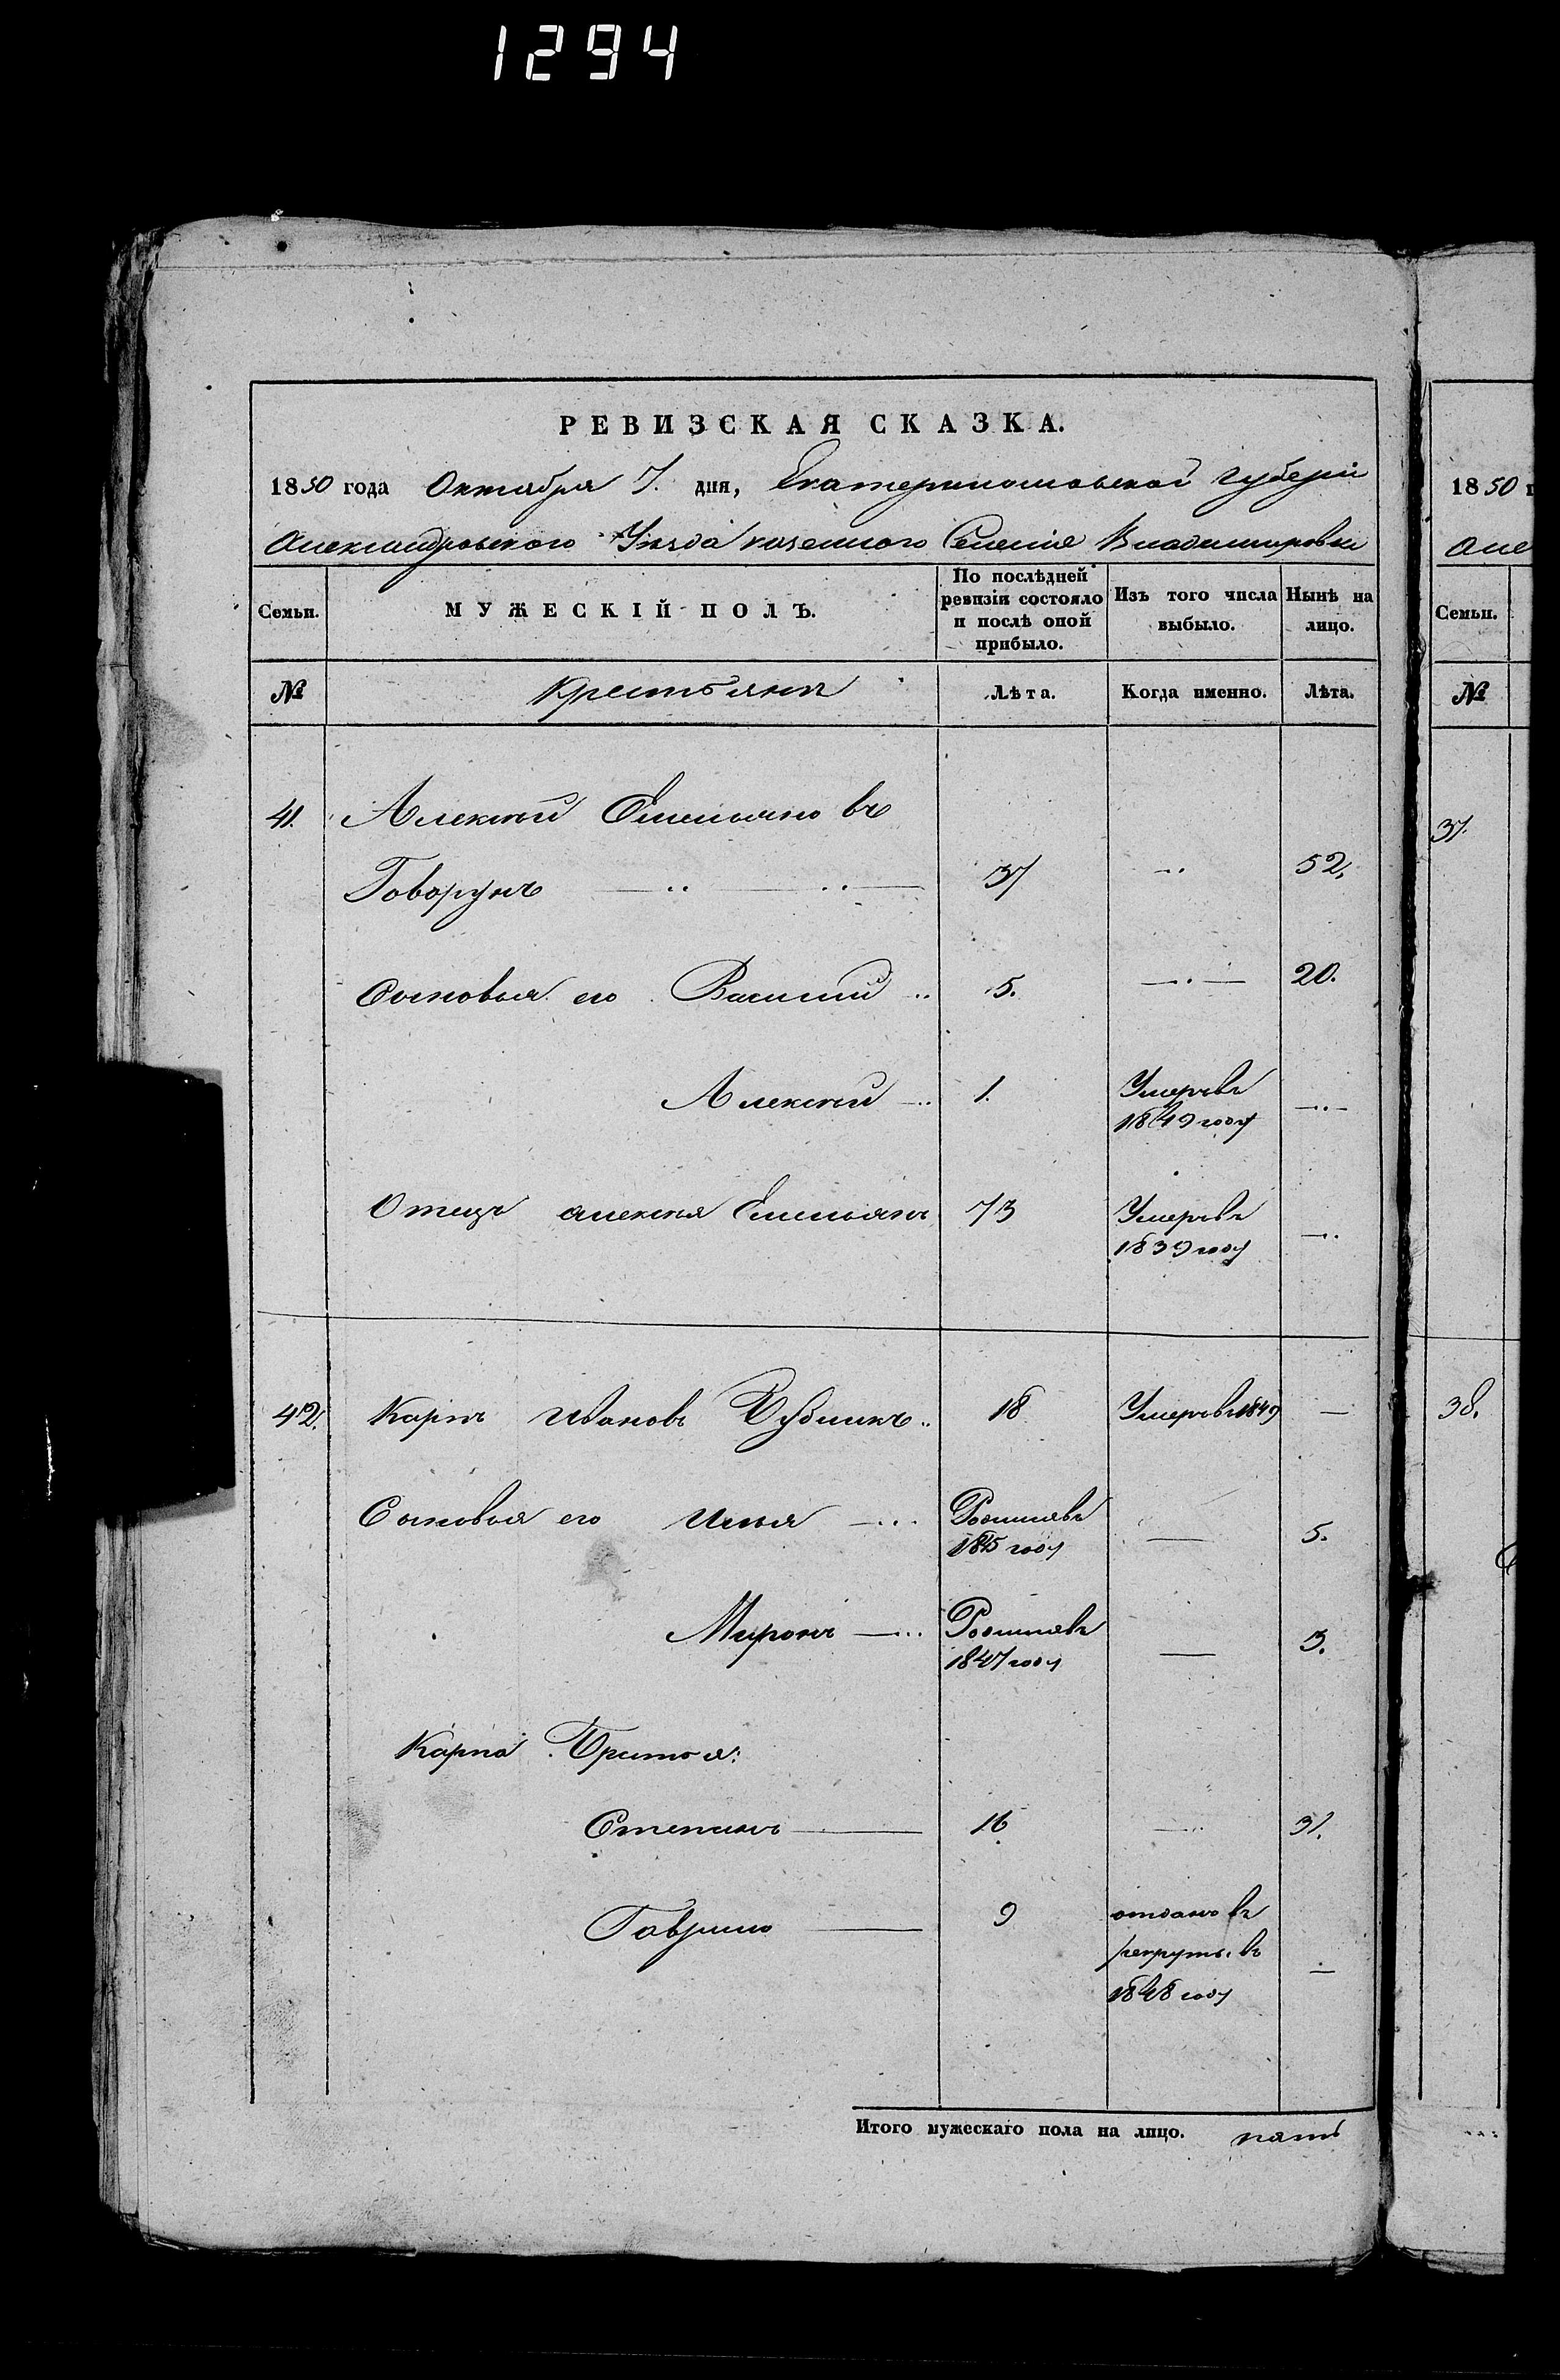 1294
РЕВИЗСКАЯ СКАЗКА.
1850 года Октября 7. дня, Екатеринославской губерніи
Александровского Уѣзда казенного Селенія Владимировки
Семьи. МУЖЕСКІЙ ПОЛЪ. По послѣдней ревизіи состояло и послѣ оной прибыло. Изъ того числа выбыло. Нынѣ на лицо.
№ Крестьяне Лѣта. Когда именно. Лѣта.
41. Алексѣй Емельяновъ
Говорунъ 37 52.
Сыновья его Василий 5. 20.
Алексѣй 1. Умеръ въ 1849 году
Отецъ алексѣя Емельянъ 73 Умеръ въ 1839 году
42. Карпъ Ивановъ Дубликъ 18 Умеръ въ 1849
Сыновья его Илья Родился въ 1845 году 5.
Миронъ Родился въ 1847 году 3.
Карпа Братья:
Степанъ 16 31.
Гаврило 9 отданъ въ рекруты въ 1848 году
Итого мужескаго пола на лицо. пять
1850 г
Але
Семьи.
№
37.
38.